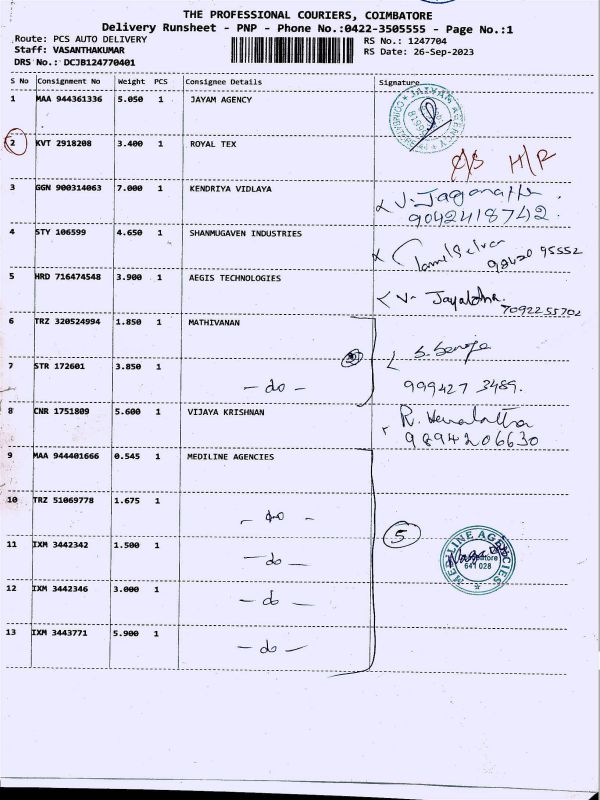 THE PROFESSIONAL COURIERS, COIMBATORE
Delivery Runsheet - PNP - Phone No.:0422-3505555 - Page No.:1
Route: PCS AUTO DELIVERY
RS No.: 1247704
Staff: VASANTHAKUMAR
RS Date: 26-Sep-2023
DRS No.: DCJB124770401
S No Consignment No Weight PCS Consignee Details Signature
1 MAA 944361336 5.050 1 JAYAM AGENCY
JAYAM AGENCY
2 KVT 2918208 3.400 1 ROYAL TEX
H/R
3 GGN 900314063 7.000 1 KENDRIYA VIDLAYA V. Jaganatha
9042418742.
4 STY 106599 4.650 1 SHANMUGAVEN INDUSTRIES
Tamil Selvan
98420 95552
5 HRD 716474548 3.900 1 AEGIS TECHNOLOGIES
V. Jayalatha.
7092255702
6 TRZ 320524994 1.850 1 MATHIVANAN
7 STR 172601 3.850 1
- do -
999427 3489.
8 CNR 1751809 5.600 1 VIJAYA KRISHNAN
R. Hemalatha
9894206630
9 MAA 944401666 0.545 1 MEDILINE AGENCIES
10 TRZ 51069778 1.675 1
- do -
5
11 IXM 3442342 1.500 1
- do -
MEDILINE AGENCIES
Coimbatore
641 028
12 IXM 3442346 3.000 1
- do -
13 IXM 3443771 5.900 1
- do -